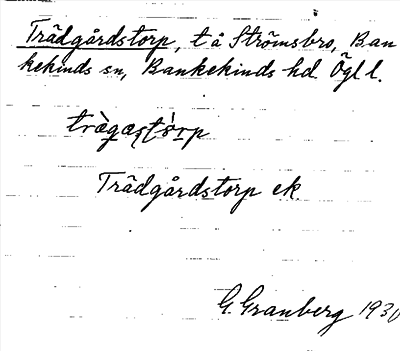 Trädgårdstorp, t å Strömsbro, Ban
kekinds sn, Bankekinds hd. Ögl l.
trὰgαʂtό̣rp
Trädgårdstorp ek.
G. Granberg 1930